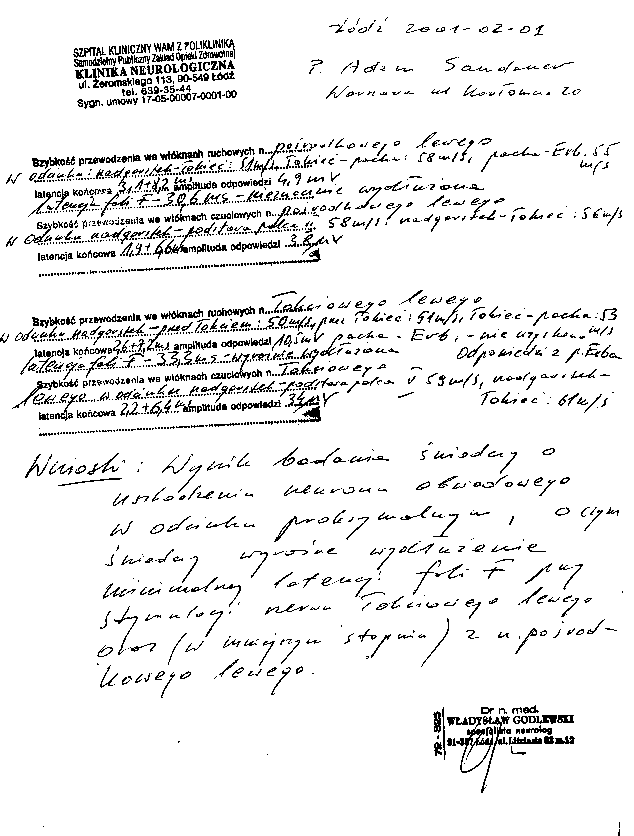 Łódź 2001-02-01
SZPITAL KLINICZNY WAM Z POLIKLINIKĄ
Samodzielny Publiczny Zakład Opieki Zdrowotnej
KLINIKA NEUROLOGICZNA
ul. Żeromskiego 113, 90-549 Łódź
tel. 639-35-44
Sygn. umowy 17-05-00007-0001-00
P. Adam Sandauer
Warszawa ul. 20
Szybkość przewodzenia we włóknach ruchowych n. pośrodkowego lewego
w odcinku: nadgarstek-łokieć: 51 m/s, łokieć-pacha: 58 m/s, pacha-Erb. 55 m/s
latencja końcowa amplituda odpowiedzi 4,9 mV
latencja fali F - 30,6 ms - nieznacznie wydłużona
Szybkość przewodzenia we włóknach czuciowych n. pośrodkowego lewego
w odcinku nadgarstek-podstawa palca 58 m/s, nadgarstek-łokieć: 56 m/s
latencja końcowa amplituda odpowiedzi
Szybkość przewodzenia we włóknach ruchowych n. łokciowego lewego
w odcinku nadgarstek-pod łokciem: 50 m/s, łokieć: 51 m/s, łokieć-pacha: 53 m/s
latencja końcowa amplituda odpowiedzi 10,5 mV pacha - Erb. - nie
latencja fali F - 33,3 ms - wyraźnie wydłużona odpowiedzi z p. Erba
Szybkość przewodzenia we włóknach czuciowych n. łokciowego
lewego w odcinku nadgarstek-podstawa palca V 59 m/s, nadgarstek-
łokieć: 61 m/s
latencja końcowa 2,2+6,4 amplituda odpowiedzi
Wnioski: Wynik badania świadczy o
uszkodzeniu neuronu obwodowego
w odcinku proksymalnym, o czym
świadczy wyraźne wydłużenie
minimalnej latencji fali F przy
stymulacji nerwu łokciowego lewego
oraz (w mniejszym stopniu) z n. pośrod-
kowego lewego.
Dr n. med.
WŁADYSŁAW GODLEWSKI
specjalista neurolog